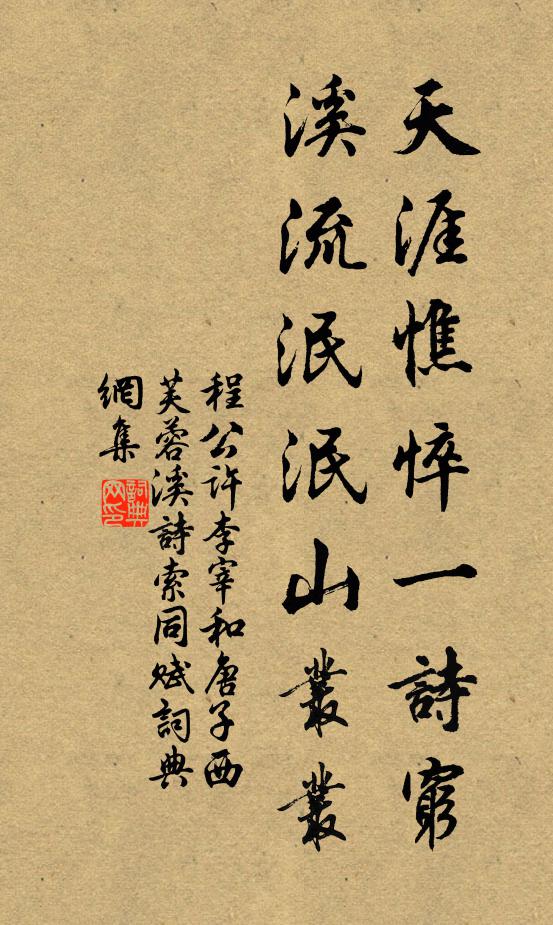 天涯憔悴一詩窮
溪流泯泯山叢叢
程公許李宰和唐子西
芙蓉溪詩索同賦詞典
網集
詞典網印